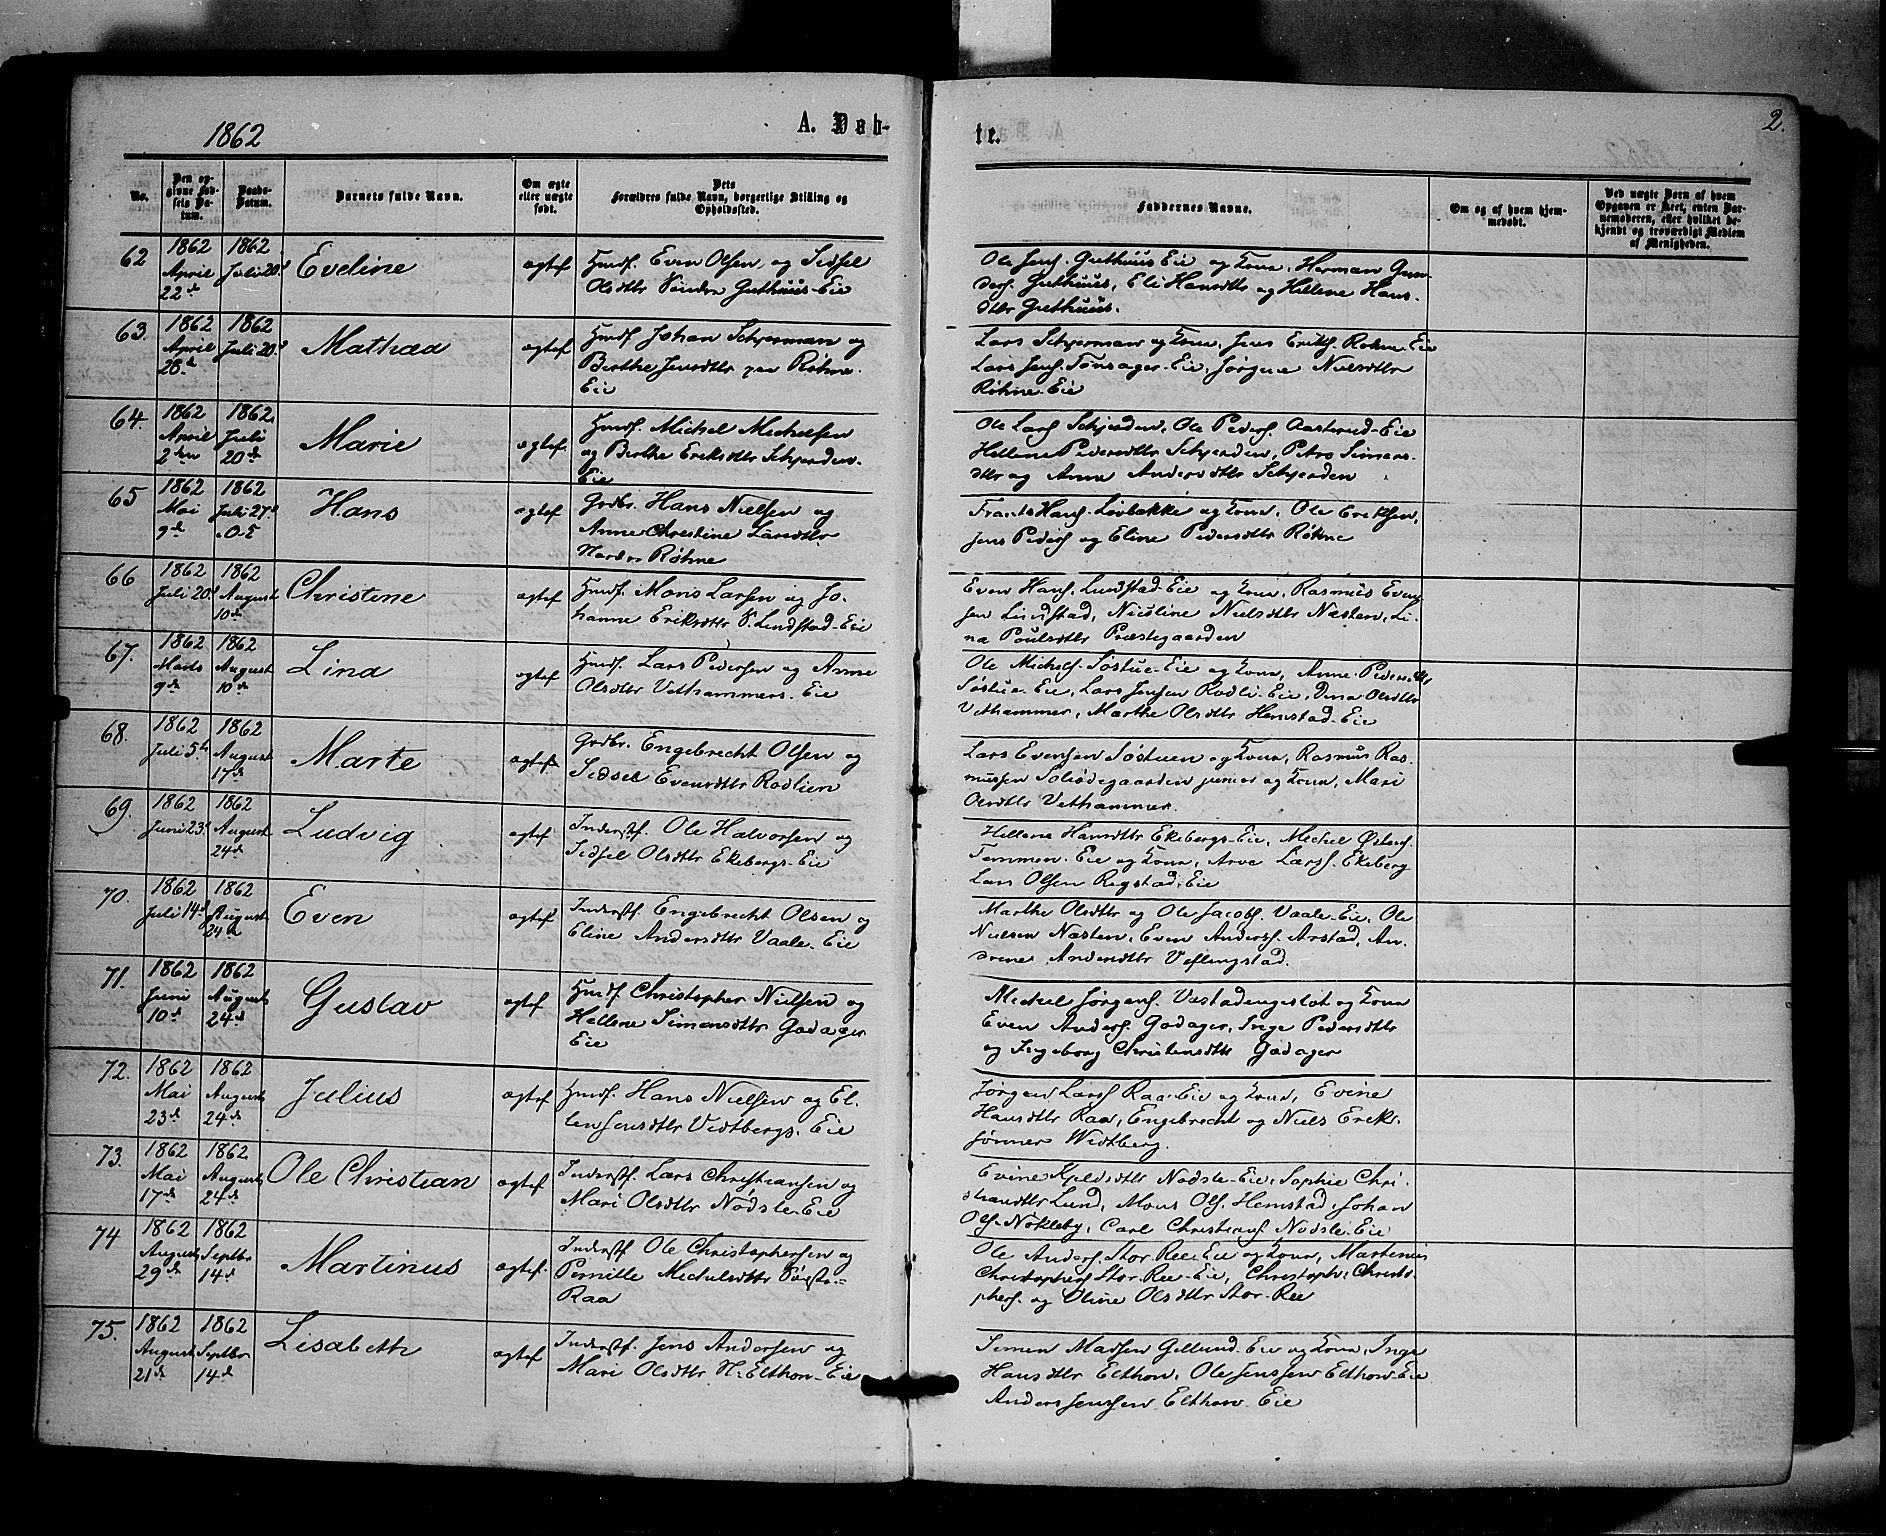 1862
A. Døb-
te.
2.
No.
Den op-
givne Fød-
sels Da-
tum.
Daabs-
Datum.
Barnets fulde Navn.
Om ægte
eller uægte
født.
Dets
Forældres fulde Navn, borgerlige Stilling og
Opholdssted.
Faddernes Navne.
Om og af hvem hjem-
medøbt.
Ved uægte Børn af hvem
Opgaven er skeet, enten Bar-
nemoderen, eller hvilket be-
kjendt og troværdigt Medlem
af Menigheden.
62
1862
April
22de
1862
Juli 20de
Eveline
ægtef
Huusf. Even Olsen og Sidsel
Olsdttr Søndre Guthuus-Eie
Ole Jensf. Guthuus Eie og Kone, Herman Gun-
dersf. Guthuus, Eli Hansdttr og Hellene Hans-
dttr Guthuus.
63.
1862
April
28de
1862
Juli 20de
Mathea
ægtef
Huusf Johan Schjerman og
Berthe Jensdttr paa Røhne-
Eie
Lars Schjerman og Kone, Jens Eriks. Røhne-Eie
Lars Jensf. Tønsager-Eie, Jørgine Nielsdttr
Røhne-Eie
64.
1862
April
2den
1862
Juli
20de
Marie
ægtef
Huusf. Michel Michelsen
og Berthe Eriksdttr Schjerden-
Eie
Ole Larsf Schjerden, Ole Pedersf. Aastrud-Eie
Hellene Pedersdttr Schjerden, Petra Simens-
dttr og Anne Andersdttr Schjerden
65
1862
Mai
9de
1862
Juli 27de
Hans
ægtef
Grdbr. Hans Nielsen og
Anne Christine Larsdttr
Røhne
Hansf. Løvbakke og Kone, Ole Eriksen,
Jens Pedersf og Eline Pedersdttr Røhne
66
1862
Juli 20de
1862
August
10de
Christine
ægtef
Huusf. Mons Larsen og Jo-
hanne Eriksdttr S. Lundstad-Eie
Even Hansf. Lundstad-Eie og Kone, Rasmus Even-
sen Lundstad, Nicoline Nielsdttr Næsten, Li-
na Poulsdttr Præstegaarden
67.
1862
Marts
9de
1862
August
10de
Lina
ægtef
Huusf. Lars Pedersen og Anne
Olsdttr Vethammers-Eie
Ole Michelsf. Søstue-Eie og Kone, Anne Pedersdttr
Søstue-Eie, Lars Jensen Rodli-Eie, Dina Olsdttr
Vethammer, Marthe Olsdttr Hemstad-Eie
68.
1862
Juli 5te
1862
August
17de
Marte
ægtef
Grdbr. Engebrecht Olsen og
Sidsel Evensdttr Rodlien
Lars Evensen Søstuen og Kone, Rasmus Ras-
mussen junior og Kone, Mari
Olsdttr Vethammer.
69.
1862
Juni 23de
1862
August
24de
Ludvig
ægtef
Inderstf. Ole Halvorsen og
Sidsel Olsdttr Ekebergs-Eie
Hellene Hansdttr Ekebergs-Eie, Michel
Eie og Kone, Larsf. Ekeberg
Lars Olsen Rogstad-Eie
70.
1862
Juli 14de
1862
August
24de
Even
ægtef
Inderstf. Engebrecht Olsen og
Eline Andersdttr Vaale-Eie
Marthe Olsdttr og Ole Jacobsf. Vaale-Eie, Ole
Nielsen Næsten, Even Andersf. Arstad, An-
drine Andersdttr Veflingstad.
71.
1862
Juni
10de
1862
August
24de
Gustav
ægtef
Huusf Christopher Nielsen og
Hellene Simensdttr Godager
Eie
Michel Jørgensf. og Kone
Even Andersf. Godager, Inge Pedersdttr
og Ingeborg Christensdttr Godager
72.
1862
Mai
23de
1862
August
24de
Julius
ægtef
Huusf. Hans Nielsen og El-
len Jensdttr Vidtbergs-Eie
Jørgen Larsf Raa-Eie og Kone, Evine
Hansdttr Raa, Engebrecht og Niels Erik-
sønner Widtberg.
73.
1862
Mai
17de
1862
August
24de
Ole Christian
ægtef
Inderstf. Lars Christiansen og
Mari Olsdttr Nødsle-Eie
Evine Kjeldsdttr Nødsle-Eie, Sophie Chri-
stiansdttr Lund, Mons Olsf. Hemstad, Johan
Olsf. Nøkleby, Carl Christiansf. Nødsle-Eie
74
1862
August
29de
1862
Septbr
14de
Martinus
ægtef
Inderstf Ole Christophersen og
Pernille Michelsdttr
Raa
Ole Andersf. Stor-Ree-Eie og Kone, Martinus
Christophersf Stor-Ree-Eie, Christoph. Christo-
phersf. og Oline Olsdttr Stor-Ree
75.
1862
August
21de
1862
Septbr
14de
Lisabeth
ægtef
Inderstf. Jens Andersen og
Mari Olsdttr N. Elthon-Eie
Simen Madsen Gillund-Eie og Kone, Inge
Hansdttr Elthon, Ole Jenssen Elthon-Eie
Anders Jenssen Elthon-Eie